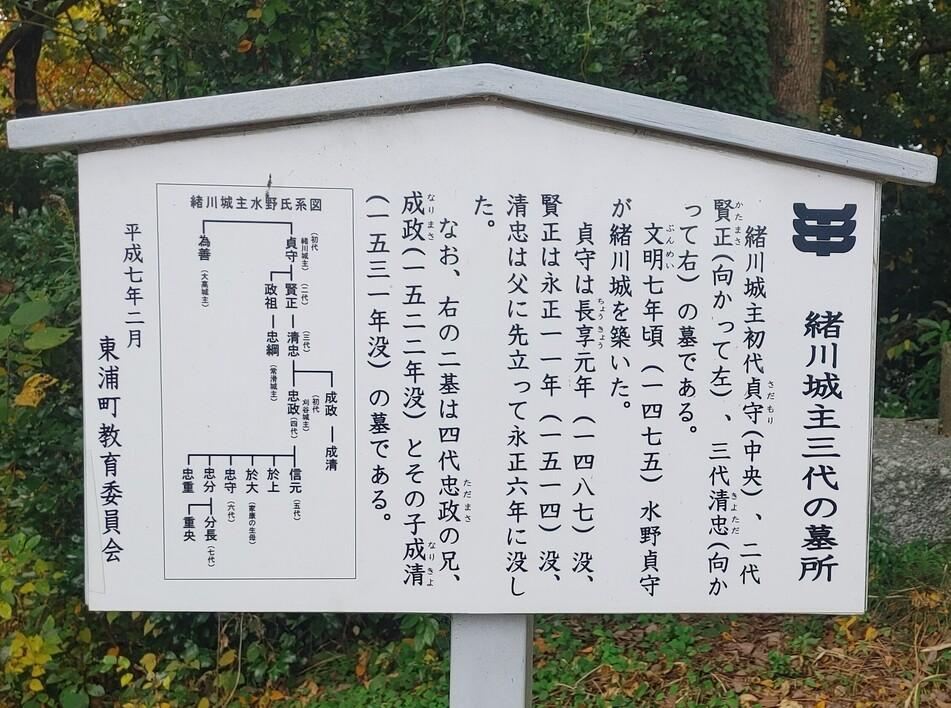 緒川城主三代の墓所
緒川城主初代貞守(中央)、二代
さだもり
賢正(向かって左)、三代清忠(向か
かたまさ
きよただ
って右)の墓である。
文明七年頃(一四七五)水野貞守
ぶんめい
が緒川城を築いた。
貞守は長享元年(一四八七)没、
ちょうきょう
賢正は永正一一年(一五一四)没、
清忠は父に先立って永正六年に没し
た。
なお、右の二基は四代忠政の兄、
ただまさ
成政(一五二二年没)とその子成清
なりまさ
なりきよ
(一五三一年没)の墓である。
緒川城主水野氏系図
貞守
(初代
緒川城主)
為善
(大高城主)
賢正
(二代)
政祖
清忠
(三代)
忠綱
(常滑城主)
成政
(初代
刈谷城主)
成清
忠政
(四代)
信元
(五代)
於上
於大
(家康の生母)
忠守
(六代)
忠分
忠重
分長
(七代)
重央
平成七年二月
東浦町教育委員会